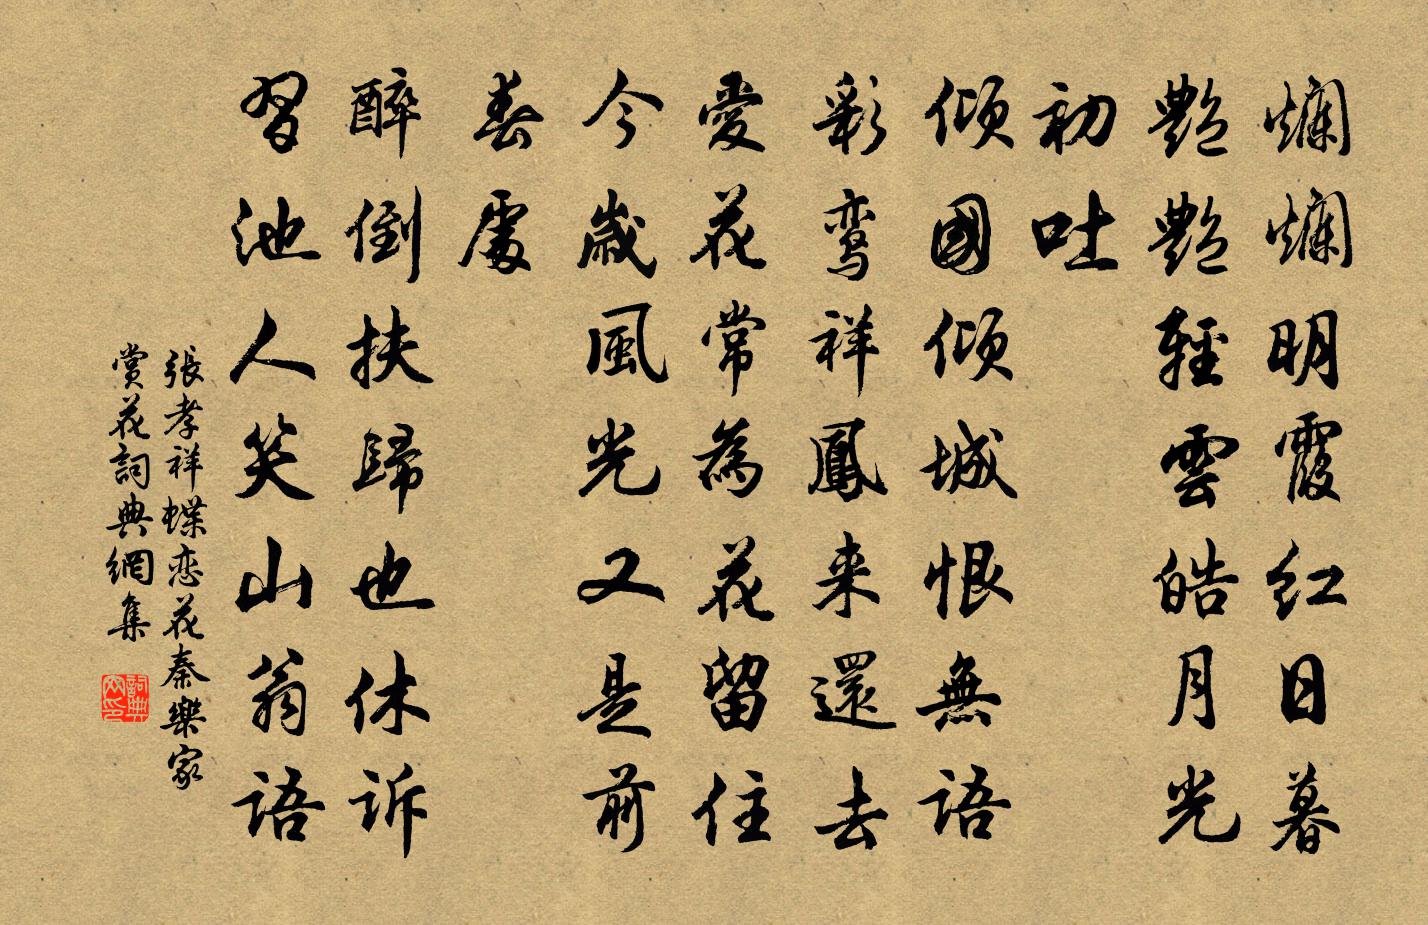 爛爛明霞紅日暮
艷艷輕雲皓月光
初吐
傾國傾城恨無語
彩鸞祥鳳来還去
愛花常為花留住
今歲風光又是前
春處
醉倒扶歸也休訴
習池人笑山翁語
張孝祥蝶恋花秦樂家
賞花詞典網集
詞典網印